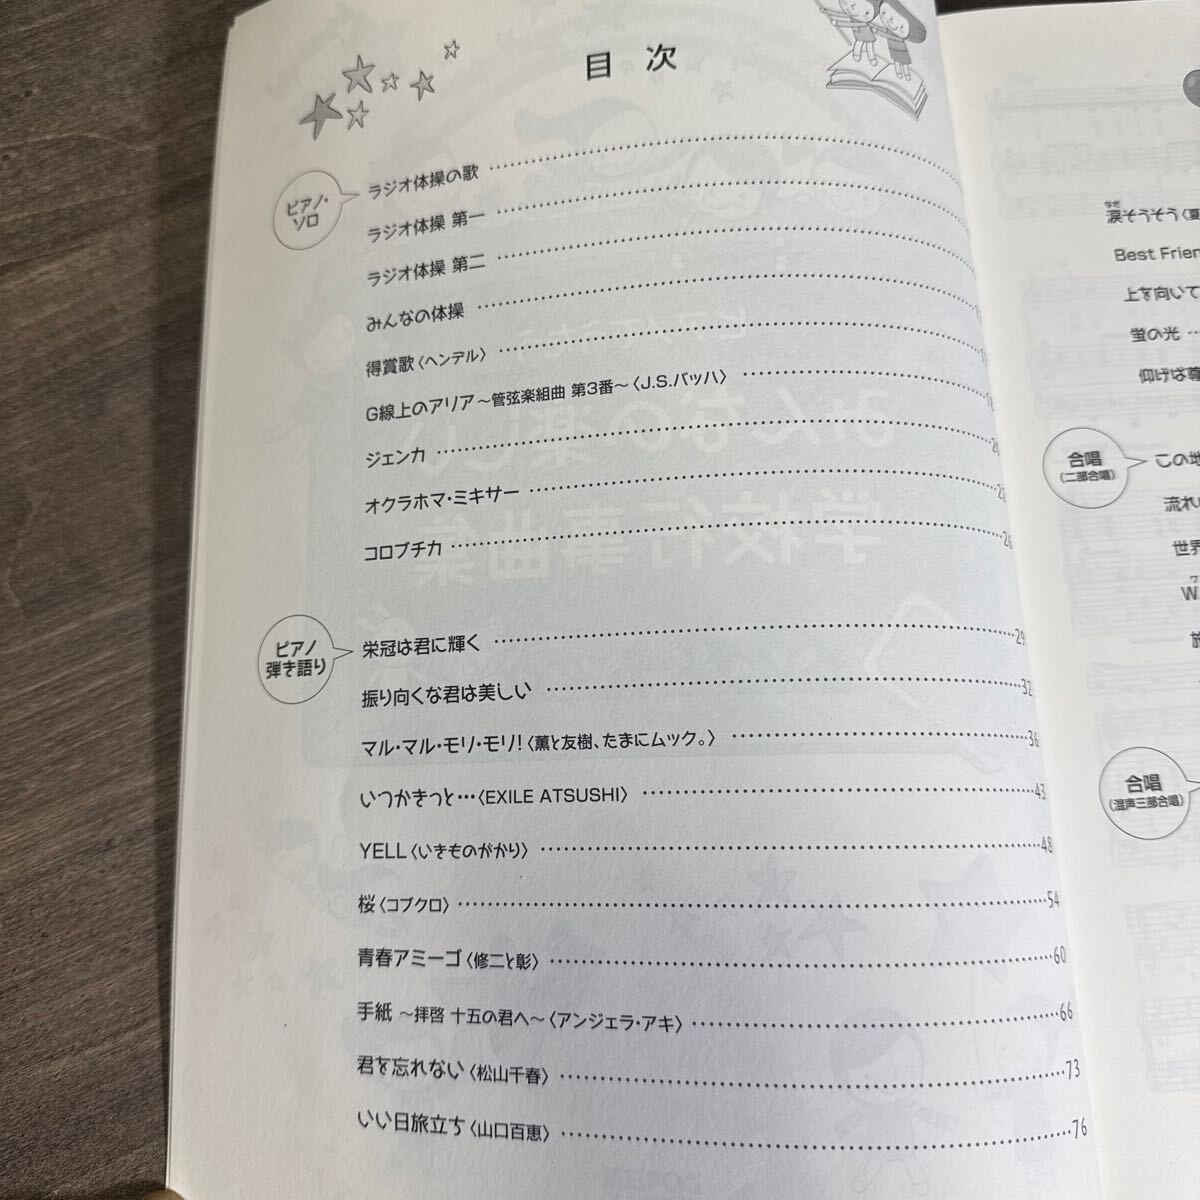 目 次
ピアノ・
ソロ
ラジオ体操の歌
ラジオ体操 第一
ラジオ体操 第二
みんなの体操
得賞歌〈ヘンデル〉
G線上のアリア～管弦楽組曲 第3番～〈J.S.バッハ〉
ジェンカ 20
オクラホマ・ミキサー 22
コロブチカ 26
ピアノ
弾き語り
栄冠は君に輝く 29
振り向くな君は美しい 32
マル・マル・モリ・モリ!〈薫と友樹、たまにムック。〉 36
いつかきっと…〈EXILE ATSUSHI〉 43
YELL〈いきものがかり〉 48
桜〈コブクロ〉 54
青春アミーゴ〈修二と彰〉 60
手紙 ～拝啓 十五の君へ～〈アンジェラ・アキ〉 66
君を忘れない〈松山千春〉 73
いい日旅立ち〈山口百恵〉 76
なだ
涙そうそう〈夏
Best Frien
上を向いて
蛍の光
仰げば尊
合唱
（二部合唱）
この地
流れ
世界
W
旅
合唱
（混声三部合唱）